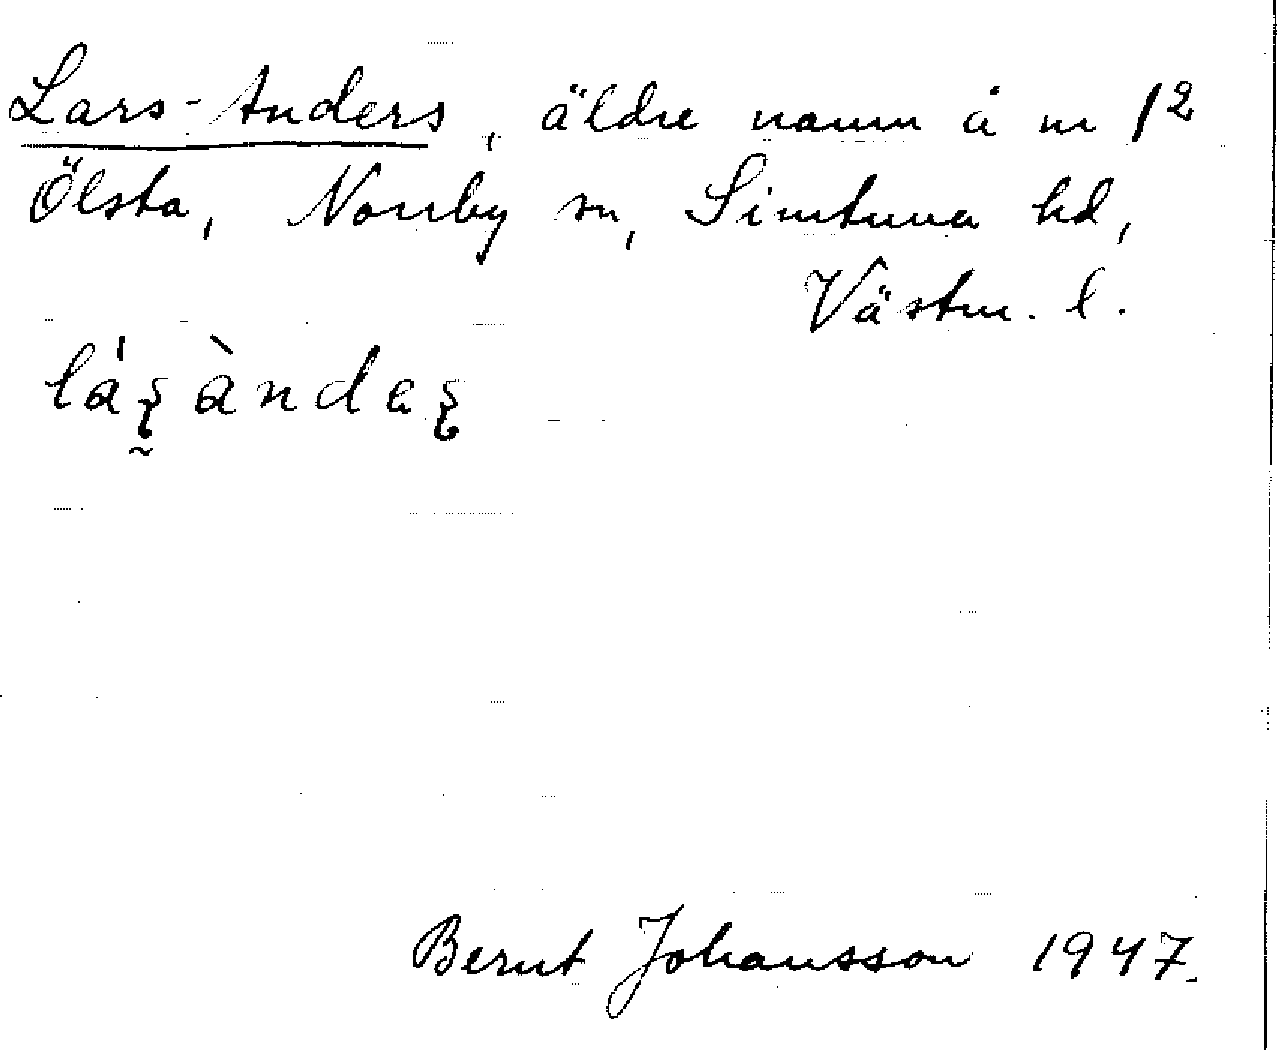 Lars-Anders, äldre namn å nr 1²
Ölsta, Norrby sn, Simtuna hd,
Västm. l.
Bernt Johansson 1947.